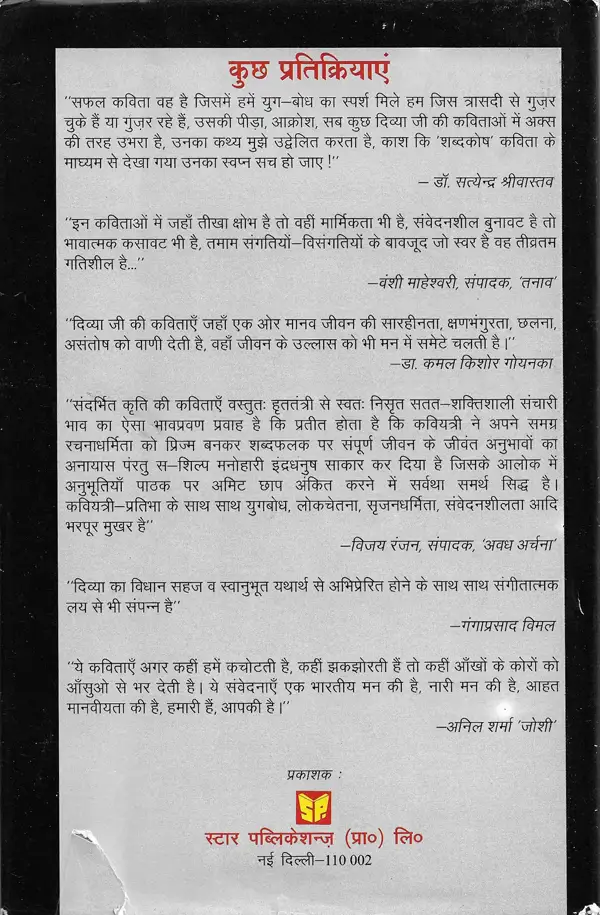 कुछ प्रतिक्रियाएं
"सफल कविता वह है जिसमें हमें युग–बोध का स्पर्श मिले हम जिस त्रासदी से गुज़र
चुके हैं या गुंज़र रहे हैं, उसकी पीड़ा, आक्रोश, सब कुछ दिव्या जी की कविताओं में अक्स
की तरह उभरा है, उनका कथ्य मुझे उद्वेलित करता है, काश कि 'शब्दकोष' कविता के
माध्यम से देखा गया उनका स्वप्न सच हो जाए !"
– डॉ. सत्येन्द्र श्रीवास्तव
"इन कविताओं में जहाँ तीखा क्षोभ है तो वहीं मार्मिकता भी है, संवेदनशील बुनावट है तो
भावात्मक कसावट भी है, तमाम संगतियों–विसंगतियों के बावजूद जो स्वर है वह तीव्रतम
गतिशील है..."
–वंशी माहेश्वरी, संपादक, 'तनाव'
"दिव्या जी की कविताएँ जहाँ एक ओर मानव जीवन की सारहीनता, क्षणभंगुरता, छलना,
असंतोष को वाणी देती है, वहाँ जीवन के उल्लास को भी मन में समेटे चलती है।"
–डा. कमल किशोर गोयनका
"संदर्भित कृति की कविताएँ वस्तुतः हृततंत्री से स्वतः निसृत सतत–शक्तिशाली संचारी
भाव का ऐसा भावप्रवण प्रवाह है कि प्रतीत होता है कि कवियत्री ने अपने समग्र
रचनाधर्मिता को प्रिज्म बनकर शब्दफलक पर संपूर्ण जीवन के जीवंत अनुभावों का
अनायास पंरतु स–शिल्प मनोहारी इंद्रधनुष साकार कर दिया है जिसके आलोक में
अनुभूतियाँ पाठक पर अमिट छाप अंकित करने में सर्वथा समर्थ सिद्ध है।
कवियत्री–प्रतिभा के साथ साथ युगबोध, लोकचेतना, सृजनधर्मिता, संवेदनशीलता आदि
भरपूर मुखर है"
–विजय रंजन, संपादक, 'अवध अर्चना'
"दिव्या का विधान सहज व स्वानुभूत यथार्थ से अभिप्रेरित होने के साथ साथ संगीतात्मक
लय से भी संपन्न है"
–गंगाप्रसाद विमल
"ये कविताएँ अगर कहीं हमें कचोटती है, कहीं झकझोरती हैं तो कहीं आँखों के कोरों को
आँसुओ से भर देती है। ये संवेदनाएँ एक भारतीय मन की है, नारी मन की है, आहत
मानवीयता की है, हमारी हैं, आपकी है।"
–अनिल शर्मा 'जोशी'
प्रकाशक :
SP
स्टार पब्लिकेशन्ज़ (प्रा०) लि०
नई दिल्ली–110 002